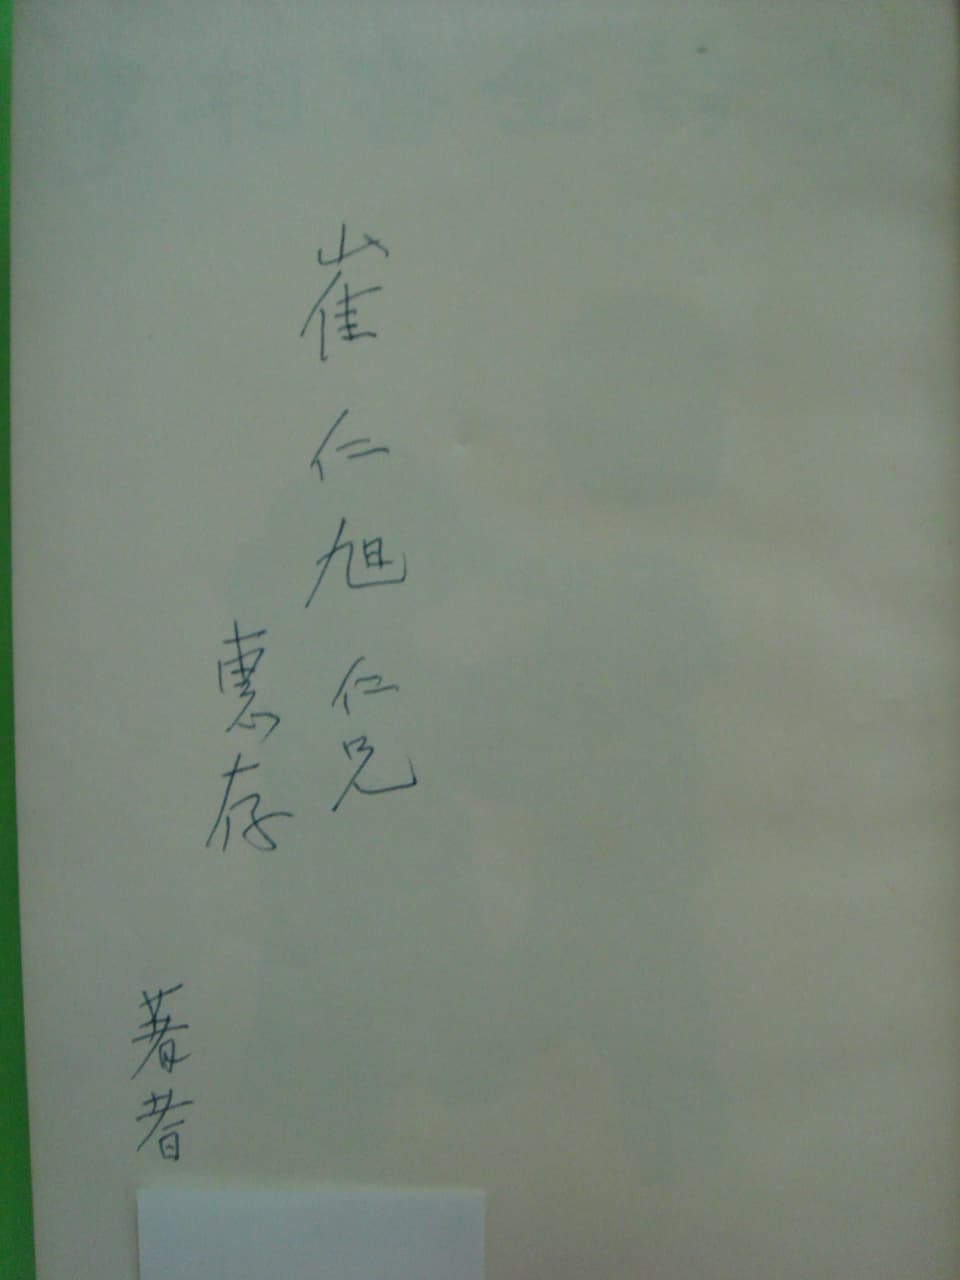 崔仁旭仁兄
惠存
著者